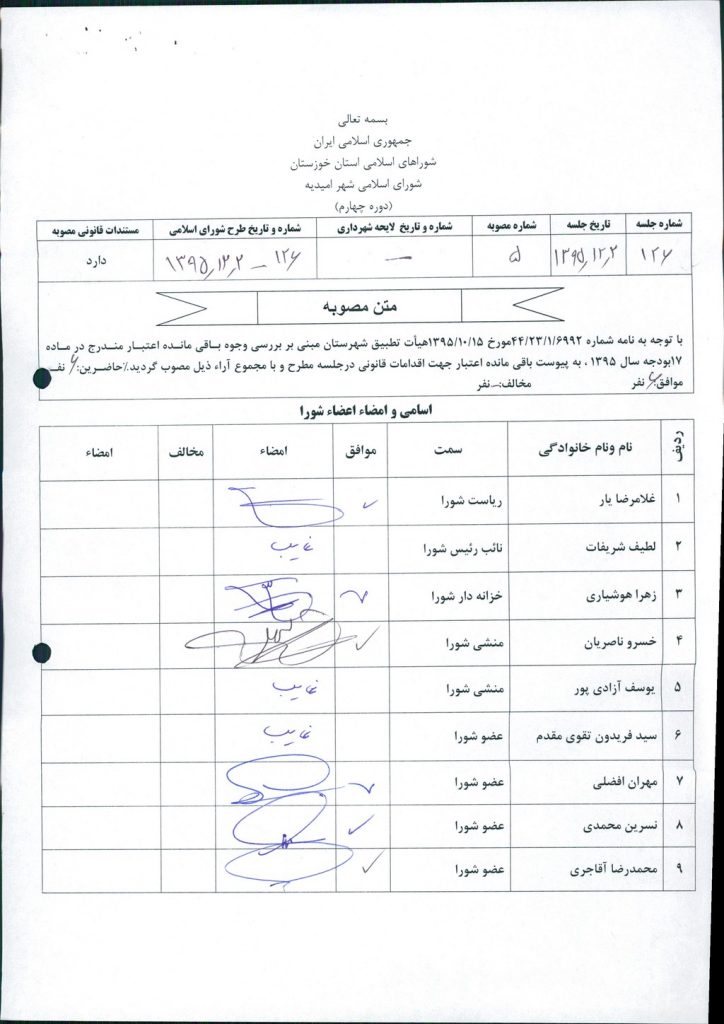 بسمه تعالی
جمهوری اسلامی ایران
شوراهای اسلامی استان خوزستان
شورای اسلامی شهر امیدیه
(دوره چهارم)
شماره جلسه تاریخ جلسه شماره مصوبه شماره و تاریخ لایحه شهرداری شماره و تاریخ طرح شورای اسلامی مستندات قانونی مصوبه
۱۲۶ ۱۳۹۵,۱۲,۲ ۵ — ۱۲۶ – ۱۳۹۵,۱۲,۲ دارد
متن مصوبه
با توجه به نامه شماره ۴۴/۲۳/۱/۶۹۹۲مورخ ۱۳۹۵/۱۰/۱۵هیأت تطبیق شهرستان مبنی بر بررسی وجوه باقی مانده اعتبار مندرج در ماده
۱۷بودجه سال ۱۳۹۵ ، به پیوست باقی مانده اعتبار جهت اقدامات قانونی درجلسه مطرح و با مجموع آراء ذیل مصوب گردید.٪حاضرین:۶ نفر
موافق:۶ نفر مخالف:–نفر
اسامی و امضاء اعضاء شورا
ردیف نام ونام خانوادگی سمت موافق امضاء مخالف امضاء
۱ غلامرضا یار ریاست شورا ✓
۲ لطیف شریفات نائب رئیس شورا غایب
۳ زهرا هوشیاری خزانه دار شورا ✓
۴ خسرو ناصریان منشی شورا ✓
۵ یوسف آزادی پور منشی شورا غایب
۶ سید فریدون تقوی مقدم عضو شورا غایب
۷ مهران افضلی عضو شورا ✓
۸ نسرین محمدی عضو شورا ✓
۹ محمدرضا آقاجری عضو شورا ✓